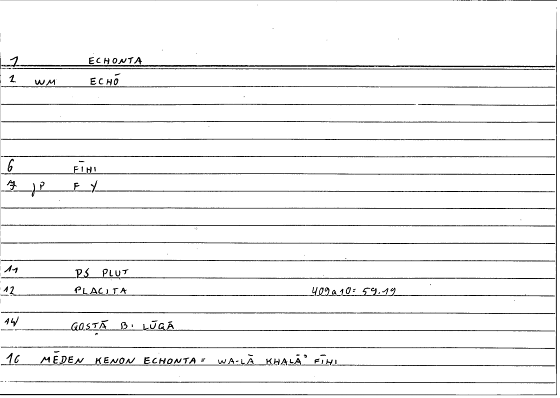 1 ECHONTA
2 WM ECHŌ
6 FĪHI
7 JP F Y
11 PS PLUT
12 PLACITA 409a10 = 59.19
14 QOSṬĀ B. LŪQĀ
16 MĒDEN KENON ECHONTA = WA-LĀ KHALĀʾ FĪHI